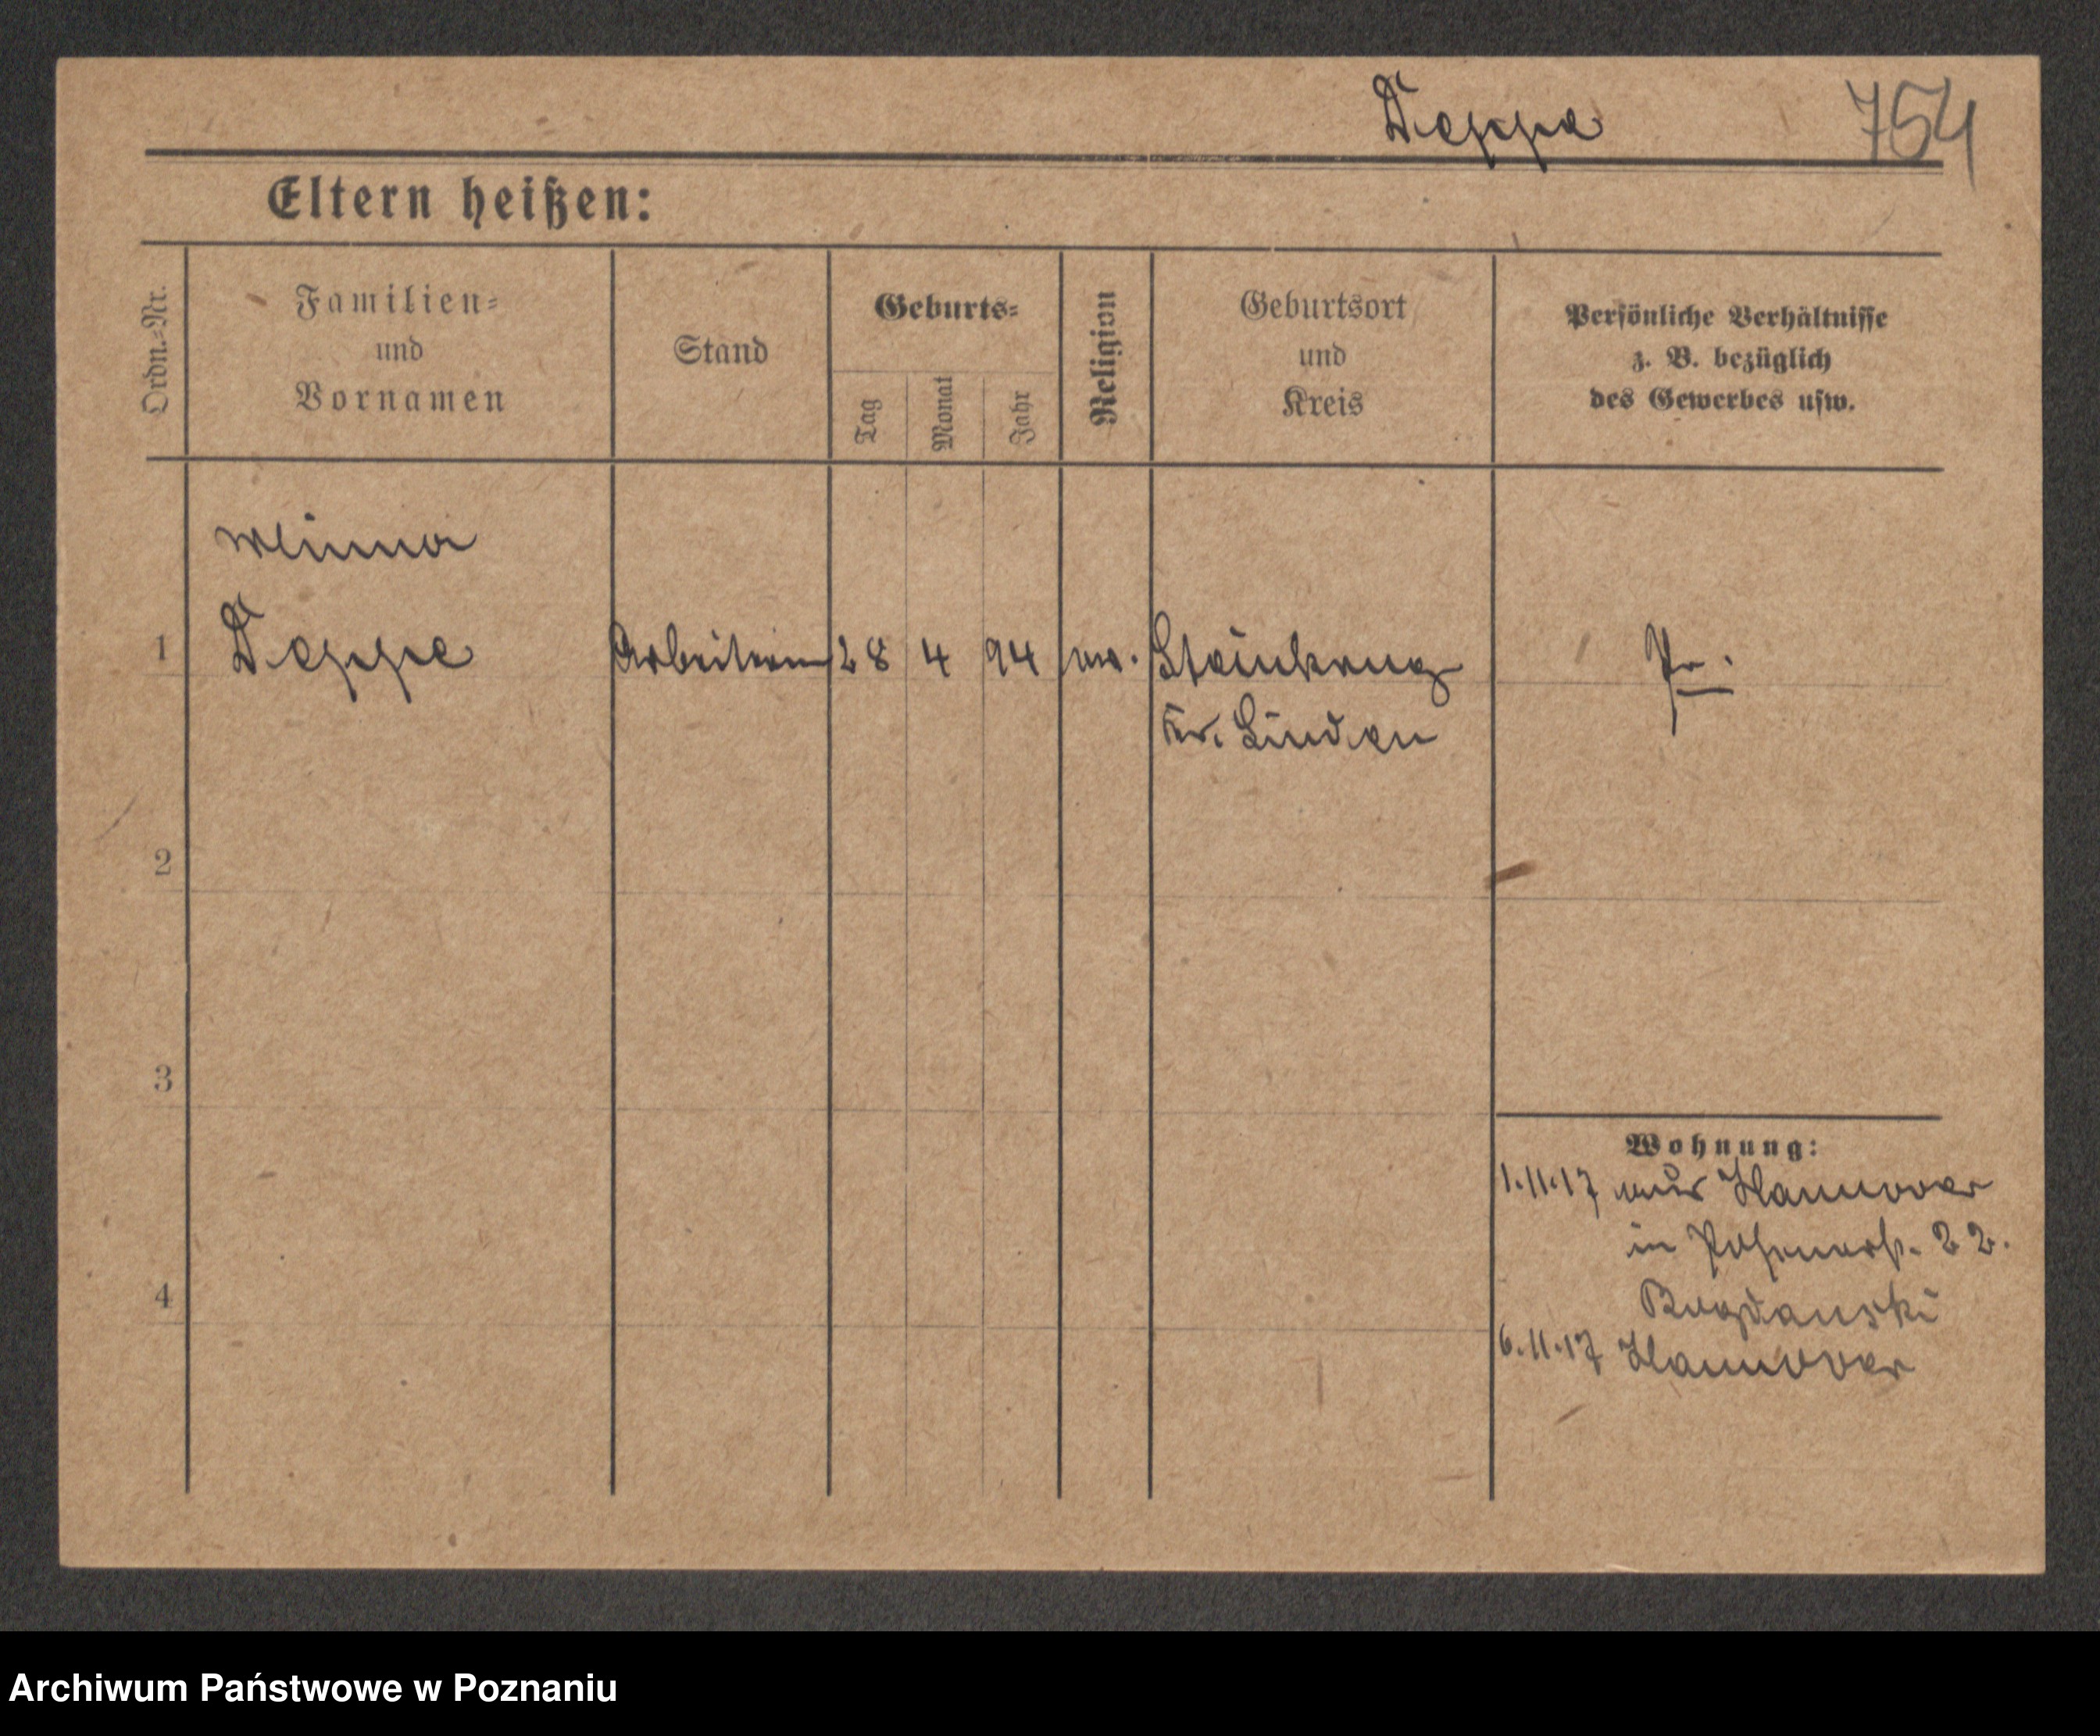 Deppe 754
Eltern heißen:
Ordn.-Nr.
Familien-
und
Vornamen
Stand
Geburts-
Tag
Monat
Jahr
Religion
Geburtsort
und
Kreis
Persönliche Verhältnisse
z. B. bezüglich
des Gewerbes usw.
Minna
1 Deppe Arbeiterin 28 4 94 ev. Steinkrug Pr.
Kr. Linden
2
3
Wohnung:
1.11.17 aus Hannover
in Posenerstr. 22.
4 Bogdanski
6.11.17 Hannover
Archiwum Państwowe w Poznaniu